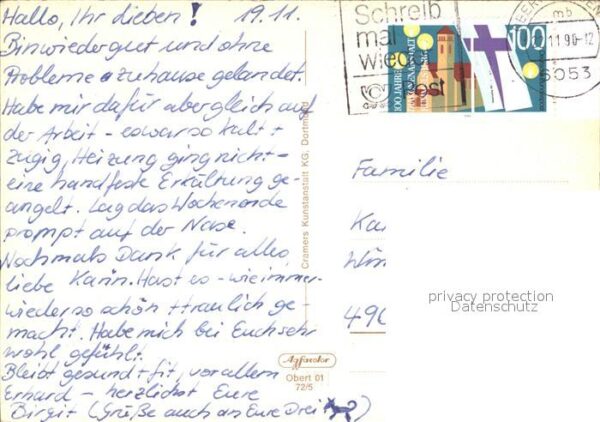 Hallo, Ihr Lieben! 19.11.
Bin wieder gut und ohne
Probleme zuhause gelandet.
Habe mir dafür aber gleich auf
der Arbeit - es war so kalt +
zugig, Heizung ging nicht -
eine handfeste Erkältung ge-
angelt. Lag das Wochenende
prompt auf der Nase.
Nochmals Dank für alles,
liebe Karin. Hast es - wie immer -
wieder so schön + traulich ge-
macht. Habe mich bei Euch sehr
wohl gefühlt.
Bleibt gesund + fit, vor allem
Erhard - herzlichst Eure
Birgit (Grüße auch an Eure Drei)
Cramers Kunstanstalt KG, Dortmund
Agfacolor
Obert 01
72/5
Schreib
mal
wieder
Post
100 JAHRE
100
mb
11.90-12
6053
Familie
Ka
490
privacy protection
Datenschutz